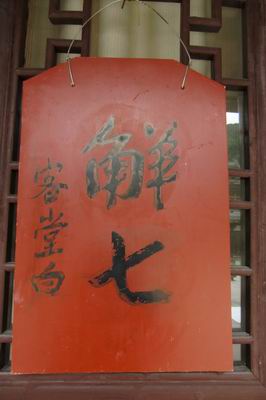 觧七
客堂白